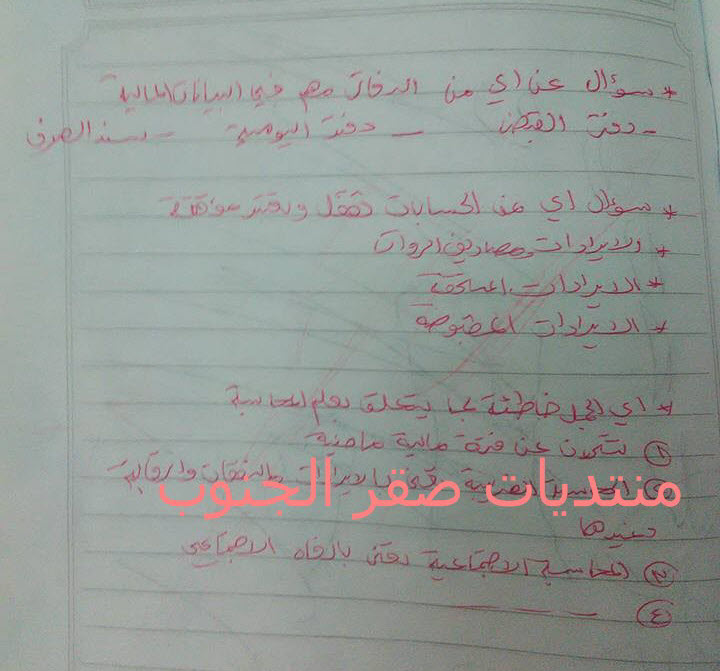 * سؤال عن اي من الدفاتر مهم في البيانات المالية
- دفتر القبض - دفتر اليومية - سند الصرف
* سؤال اي من الحسابات تقفل وتعتبر مؤقتة
* الايرادات ومصاريف الرواتب
* الايرادات المستحقة
* الايرادات المقبوضة
* اي الجمل خاطئة بما يتعلق بعلم المحاسبة
① تتحدث عن فترة مالية ماضية
② المحاسبة بالايرادات والنفقات والرقابة
منتديات صقر الجنوب
وغيرها
③ المحاسبة الاجتماعية تعتني بالرفاه الاجتماعي
④ - - -